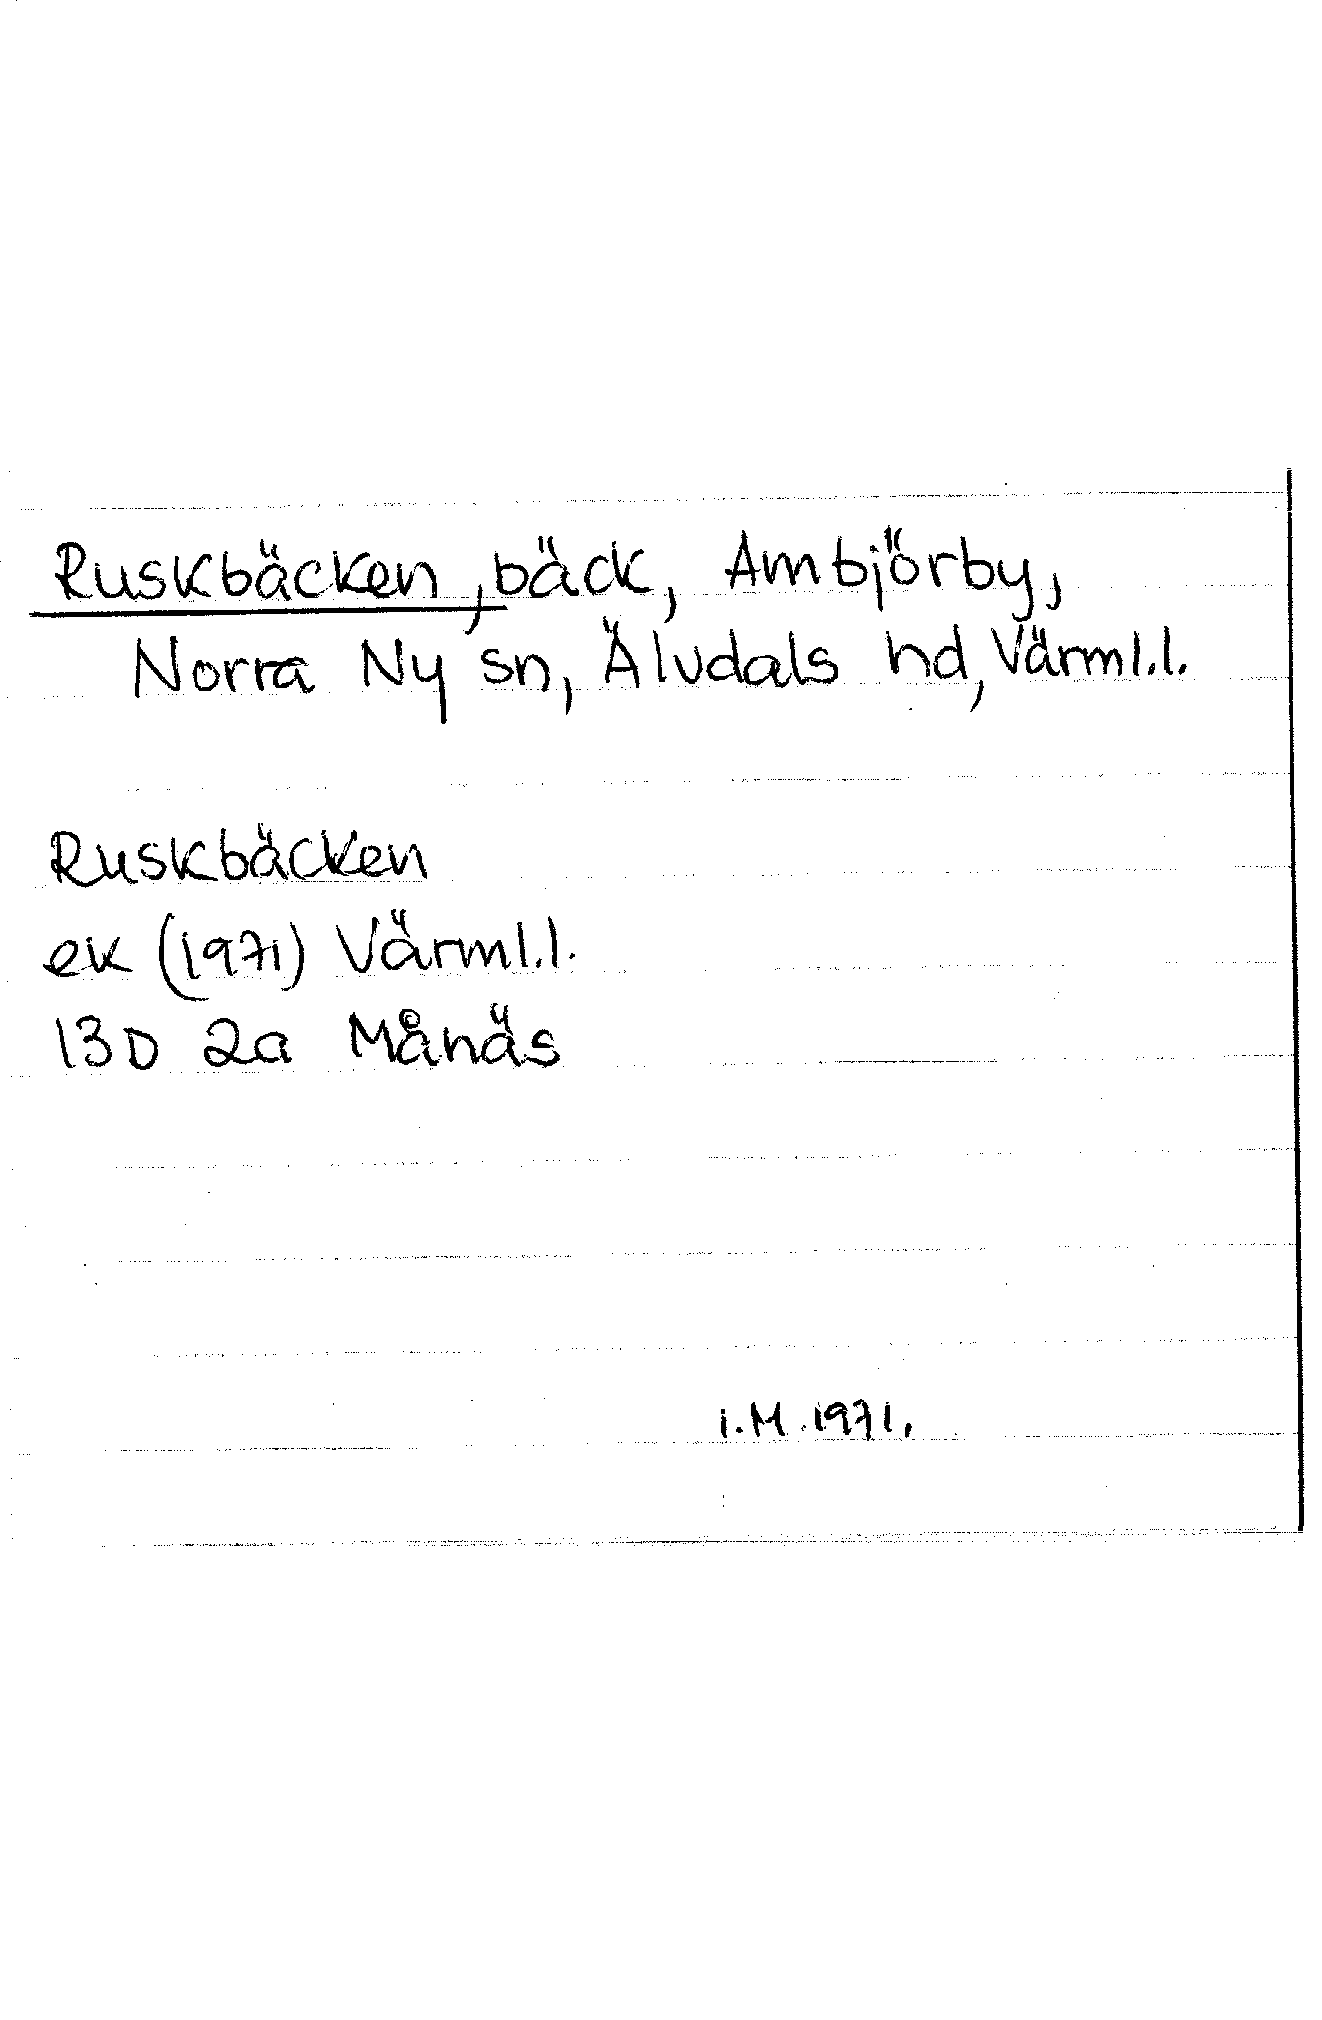 Ruskbäcken, bäck, Ambjörby,
Norra Ny sn, Älvdals hd, Värml.l.
Ruskbäcken
ek (1971) Värml.l.
13D 2a Månäs
i.M. 1971.